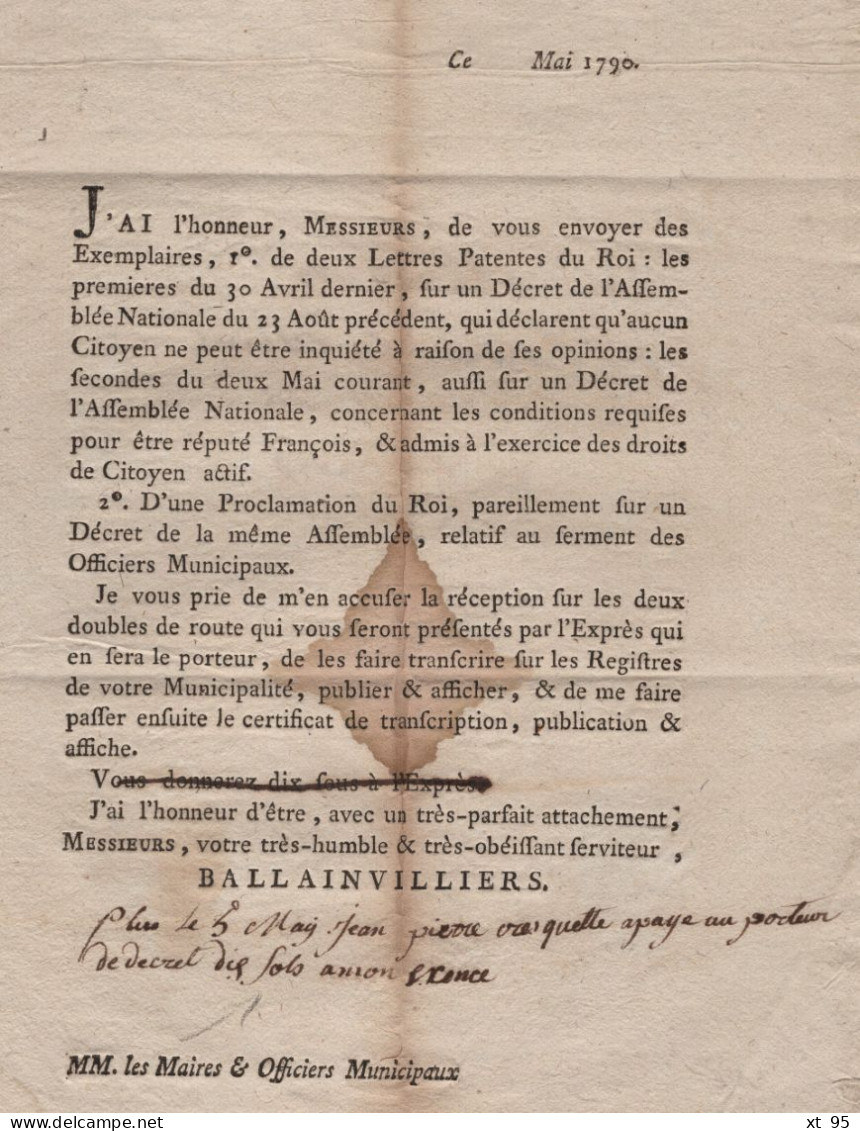 Ce Mai 1790.
J'AI l'honneur, MESSIEURS, de vous envoyer des
Exemplaires, 1º. de deux Lettres Patentes du Roi : les
premieres du 30 Avril dernier, ſur un Décret de l'Aſſem-
blée Nationale du 23 Août précédent, qui déclarent qu'aucun
Citoyen ne peut être inquiété à raiſon de ſes opinions : les
ſecondes du deux Mai courant, auſſi ſur un Décret de
l'Aſſemblée Nationale, concernant les conditions requiſes
pour être réputé François, & admis à l'exercice des droits
de Citoyen actif.
2º. D'une Proclamation du Roi, pareillement ſur un
Décret de la même Aſſemblée, relatif au ſerment des
Officiers Municipaux.
Je vous prie de m'en accuſer la réception ſur les deux
doubles de route qui vous ſeront préſentés par l'Exprès qui
en ſera le porteur, de les faire tranſcrire ſur les Regiſtres
de votre Municipalité, publier & afficher, & de me faire
paſſer enſuite le certificat de tranſcription, publication &
affiche.
Vous donnerez dix ſous à l'Exprès
J'ai l'honneur d'être, avec un très-parfait attachement,
MESSIEURS, votre très-humble & très-obéiſſant ſerviteur,
BALLAINVILLIERS.
plus le 5 Maÿ Jean pierre apaye au porteur
de decret dix sols
MM. les Maires & Officiers Municipaux
xt 95